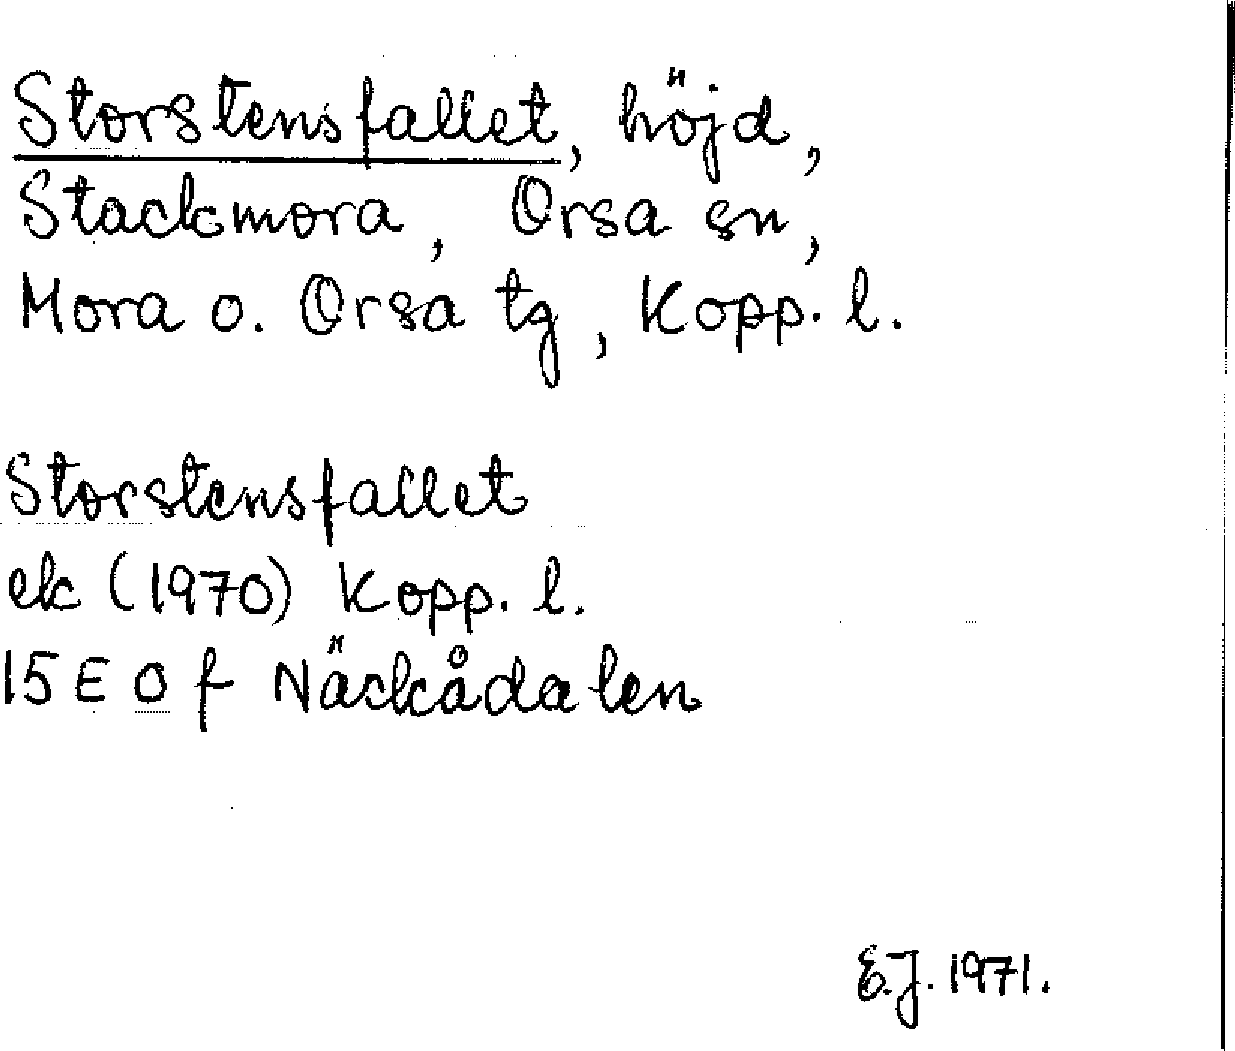 Storstensfallet, höjd,
Stackmora, Orsa sn,
Mora o. Orsa tg, Kopp. l.
Storstensfallet
ek (1970) Kopp. l.
15 E 0 f Näckådalen
E.J. 1971.